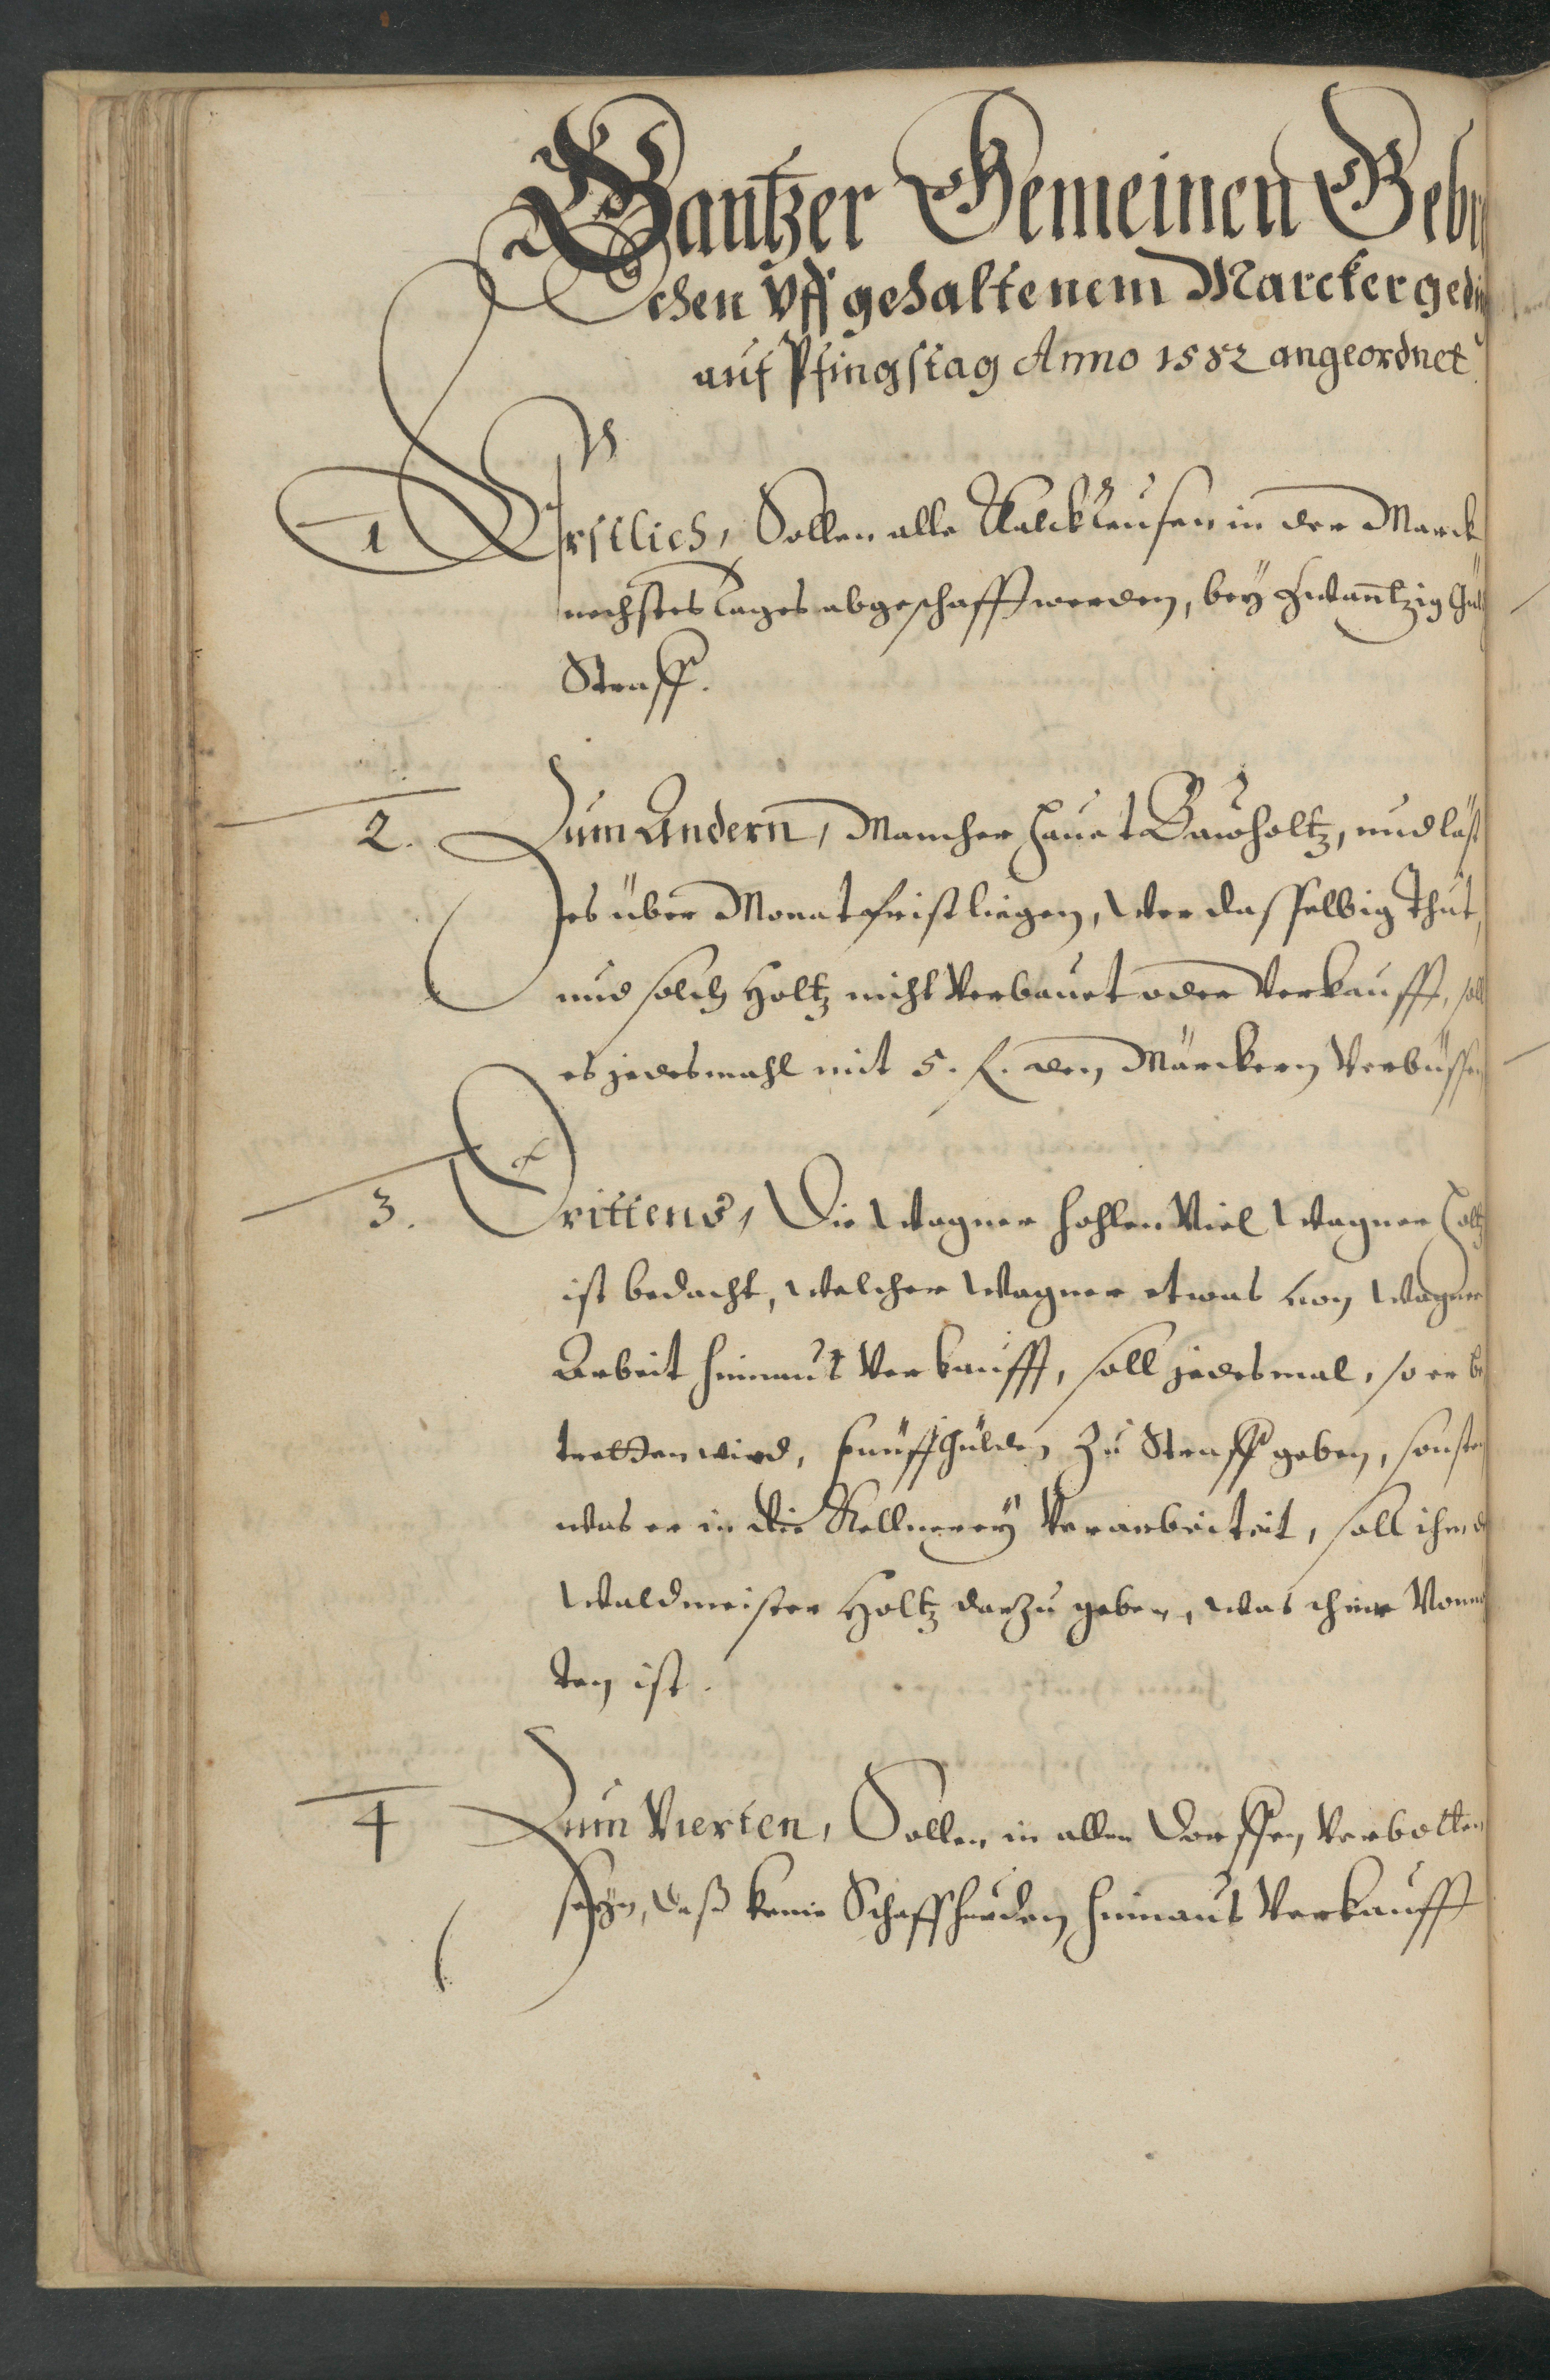 Gantzer Gemeinen Gebr
chen vff gehaltenem Marckergedi
auf Pfingstag Anno 1582 angeordnet
1 Erstlich, Sollen alle Kalckleusen in der Marck
nechstes Tages abgeschafft werden, beÿ Zwanntzig Gul
Straff.
2. Zum Andern, Mancher Hauet Bawholtz, und läst
es über Monatfrist liegen, Wer dasselbig Thut,
und solch Holtz nicht Verbauet oder Verkaufft, soll
es jedesmahl mit 5. f. den Märckern Verbüssen
3. Drittens, Die Wagner hohlen Viel Wagner Holtz
ist bedacht, Welcher Wagner etwas von Wagner
Arbeit hinnaus Verkaufft, soll jedesmal, so er be
tretten wird, Fünff Gülden Zu Straff geben, sonsten
was er in die Kellnereÿ Verarbeiteit, soll ihm d
Waldmeister Holtz darzu geben, was ihme Vonn
ten ist.
4 Zum Vierten, Sollen in allen Dorffen Verbotten
seÿn, daß keine Schaffheuden hinnaus Verkaufft